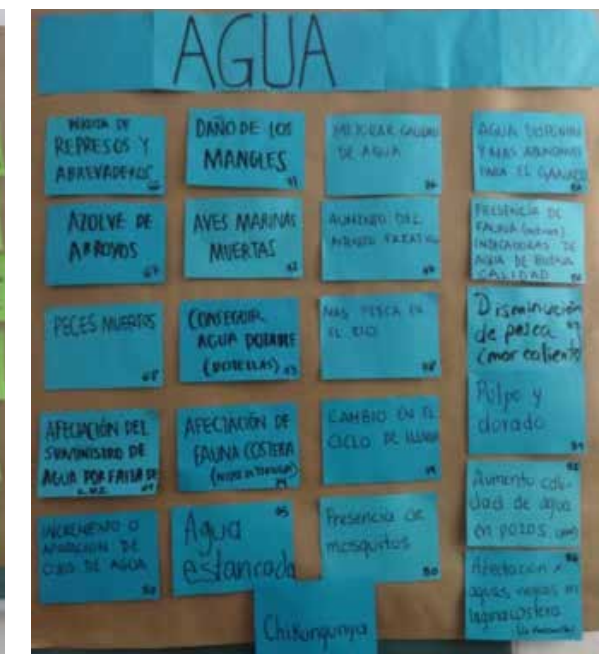 AGUA
PÉRDIDA DE
REPRESOS Y
ABREVADEROS
AZOLVE DE
ARROYOS
67
PECES MUERTOS
68
AFECTACIÓN DEL
SUMINISTRO DE
AGUA POR FALTA DE
INCREMENTO O
APARICIÓN DE
OJO DE AGUA
DAÑO DE LOS
MANGLES
AVES MARINAS
MUERTAS
CONSEGUIR
AGUA POTABLE
(BOTELLAS)
AFECTACIÓN DE
FAUNA COSTERA
Agua
estancada
MEJORAR CALIDAD
DE AGUA
AUMENTO DEL
MANTO FREÁTICO
MAS PESCA EN
EL RIO
CAMBIO EN EL
CICLO DE LLUVIA
Presencia de
mosquitos
80
Chikungunya
AGUA DISPONIBLE
Y MAS ABUNDANTE
PARA EL GANADO
PRESENCIA DE
FAUNA
INDICADORAS DE
AGUA DE BUENA
CALIDAD
Disminución
de pesca
(mar caliente)
Pulpo y
dorado
Aumento cali-
dad de agua
en pozos
Afectación x
aguas negras en
laguna costera